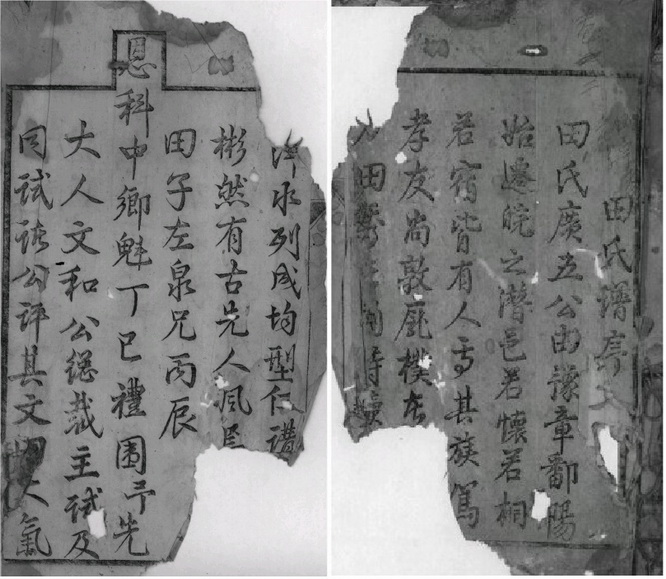 田氏譜序
田氏廣五公由豫章鄱陽
始遷皖之潛邑若懷若桐
若宿皆有人焉其族篤
孝友尚敦龐樸
田
泮水列成均型仁講
彬然有古先人風
田子左泉兄丙辰
恩科中鄉魁丁巳禮圍予先
大人文和公總裁主試及
同試諸公評其文大氣